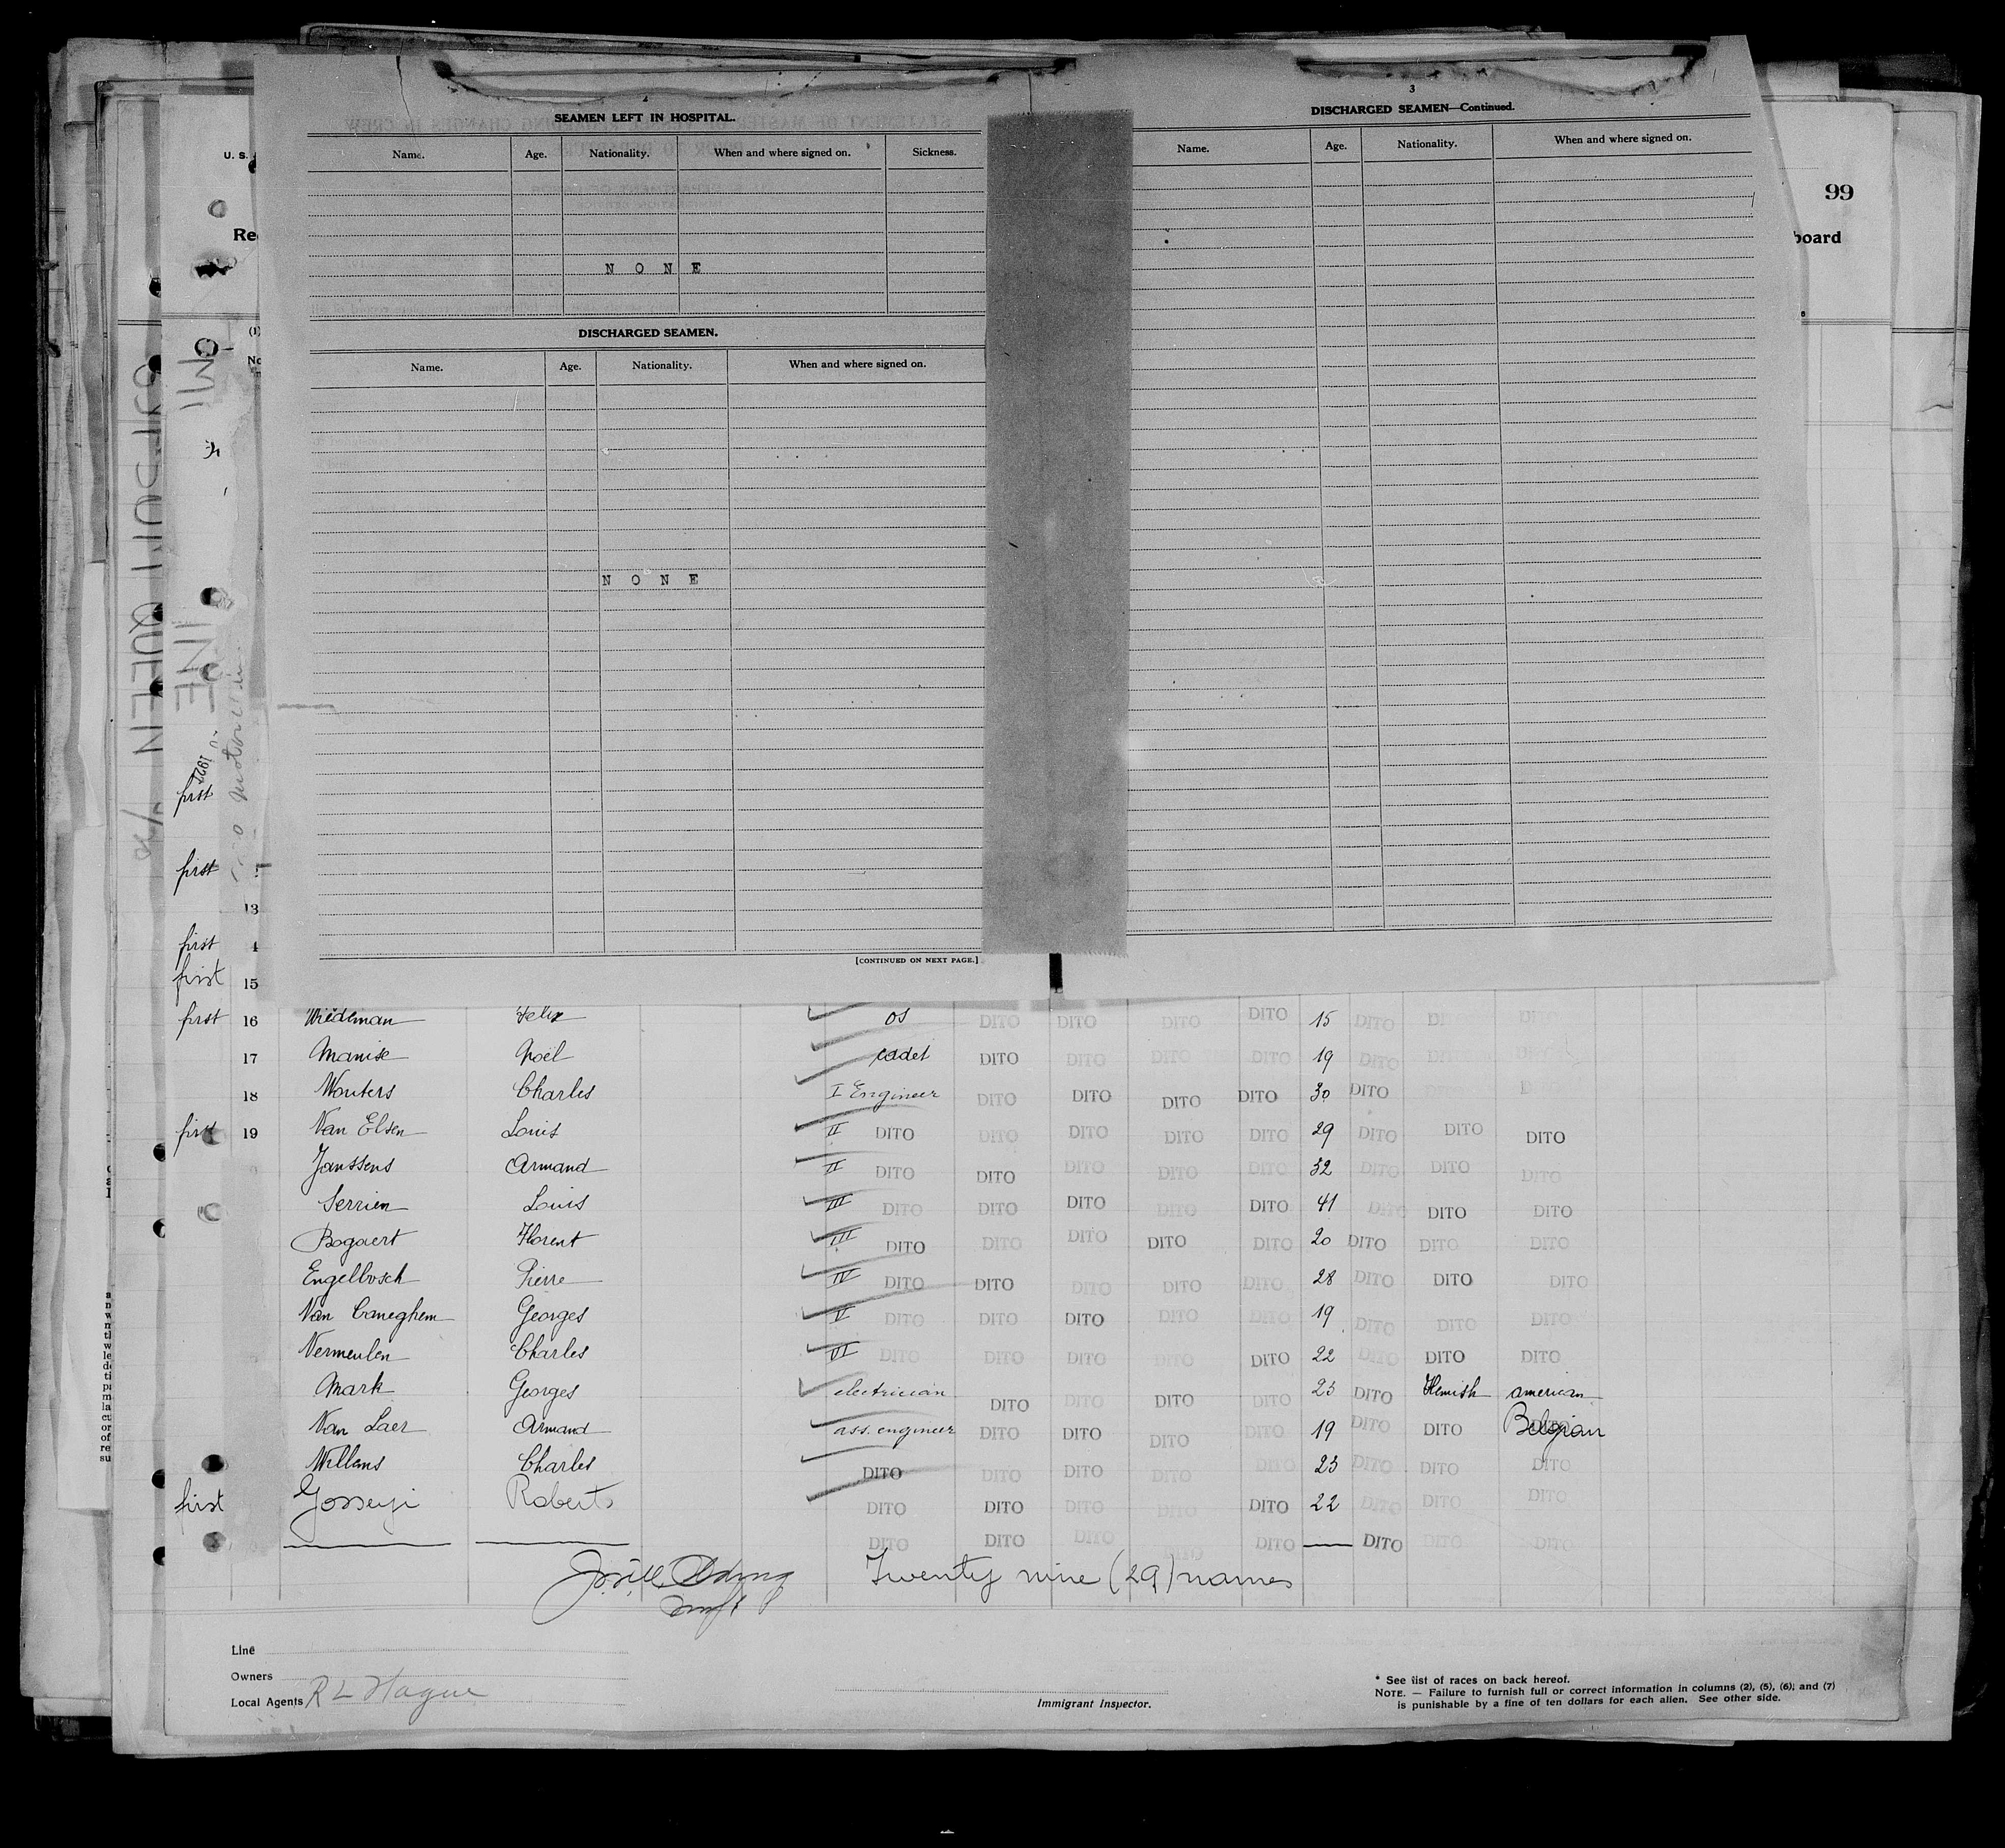 99
U. S.
Re
board
(1)
No
SEAMEN LEFT IN HOSPITAL.
Name. Age. Nationality. When and where signed on. Sickness.
N O N E
DISCHARGED SEAMEN.
Name. Age. Nationality. When and where signed on.
N O N E
[CONTINUED ON NEXT PAGE.]
3
DISCHARGED SEAMEN—Continued.
Name. Age. Nationality. When and where signed on.
QUEEN
INE
first
first
13
first
first 15
first 16 Wiedeman Felix os DITO DITO DITO DITO 15 DITO DI DITO
17 Manise Noël cadet DITO DITO DITO DITO 19 DITO
18 Wouters Charles I Engineer DITO DITO DITO DITO 30 DITO
first 19 Van Elsen Louis II DITO DITO DITO DITO DITO 29 DITO DITO DITO
Janssens Armand II DITO DITO DITO DITO DITO 32 DITO DITO DITO
Serrien Louis III DITO DITO DITO DITO DITO 41 DITO DITO DITO
Bogaert Florent III DITO DITO DITO DITO DITO 20 DITO DITO DITO
Engelbosch Pierre IV DITO DITO DITO DITO DITO 28 DITO DITO DITO
Van Caneghem Georges V DITO DITO DITO DITO DITO 19 DITO DITO DITO
Vermeulen Charles VI DITO DITO DITO DITO DITO 22 DITO DITO DITO
Mark Georges electrician DITO DITO DITO DITO 23 DITO Flemish american
Van Laer Armand ass. engineer DITO DITO DITO DITO 19 DITO DITO Belgian
Willems Charles DITO DITO DITO DITO DITO 23 DITO DITO DITO
first Roberts DITO DITO DITO DITO DITO 22 DITO DITO DITO
DITO DITO DITO DITO DITO DITO DITO DITO
Twenty nine (29) names
Line
Owners
Local Agents R L Hague
Immigrant Inspector.
* See list of races on back hereof.
NOTE. — Failure to furnish full or correct information in columns (2), (5), (6), and (7)
is punishable by a fine of ten dollars for each alien. See other side.